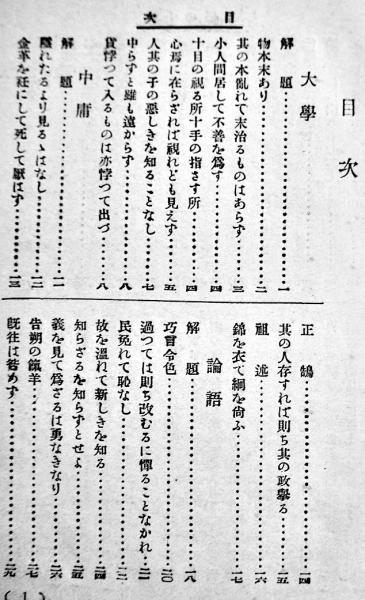 目次
目次
大學
解題……………一
物本末あり……………二
其の本亂れて末治るものはあらず……………三
小人間居して不善を爲す……………四
十目の視る所十手の指さす所……………四
心焉に在らざれば視れども見えず……………五
人其の子の惡しきを知ることなし……………七
中らずと雖も遠からず……………八
貨悖つて入るものは亦悖つて出づ……………八
中庸
解題……………一一
隱れたるより見るゝはなし……………一二
金革を衽にして死して厭はず……………一三
正鵠……………一四
其の人存すれば則ち其の政擧る……………一五
祖述……………一六
錦を衣て絅を尙ふ……………一七
論語
解題……………一八
巧言令色……………二〇
過つては則ち改むるに憚ることなかれ……………二一
民免れて恥なし……………二三
故を溫れて新しきを知る……………二四
知らざるを知らずとせよ……………二五
義を見て爲ざるは勇なきなり……………二六
告朔の餼羊……………二七
旣往は咎めず……………二九
(1)